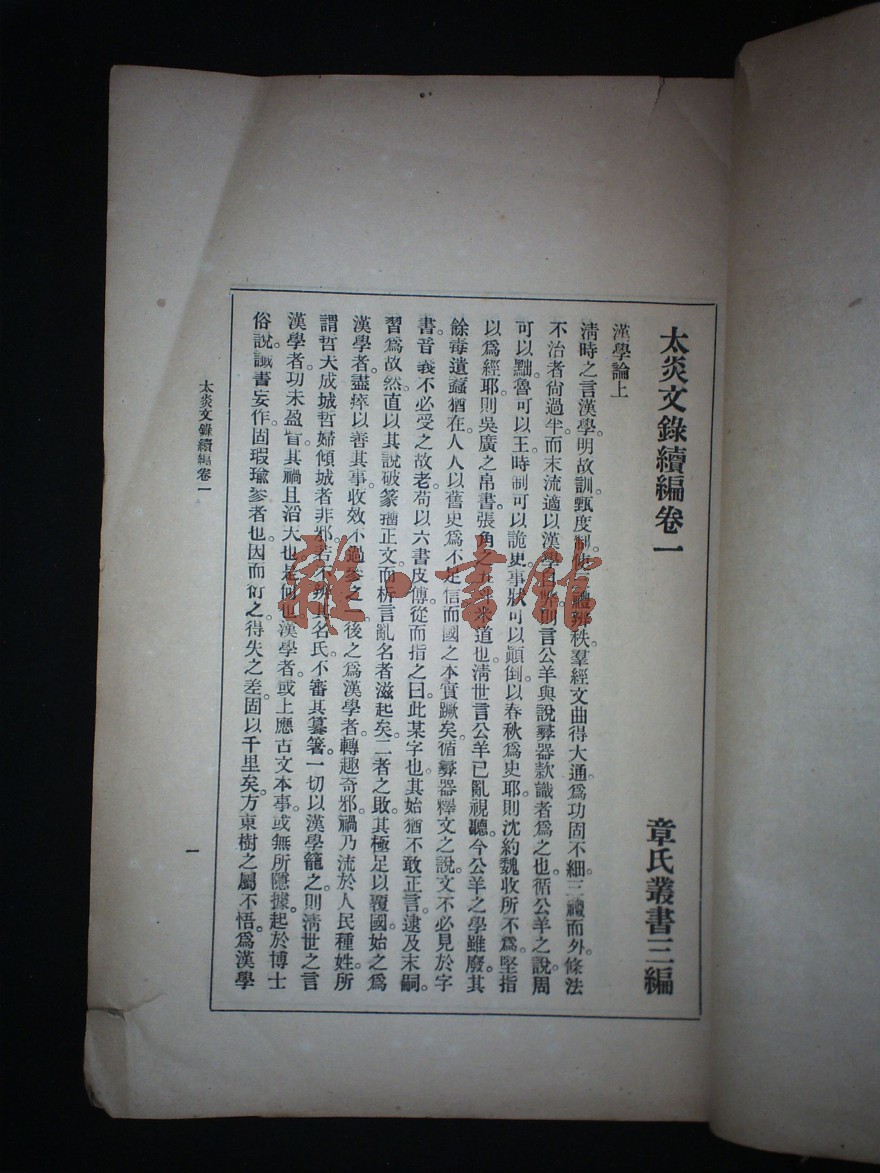 太炎文錄續編卷一
章氏叢書三編
漢學論上
清時之言漢學明故訓。甄度制。使三禮辨秩。羣經文曲得大通。爲功固不細。三禮而外。條法
不治者尙過半。而末流適以漢學自弊。則言公羊與說彝器款識者爲之也。循公羊之說。周
可以黜。魯可以王。時制可以詭。史事狀可以顚倒。以春秋爲史耶。則沈約魏收所不爲。堅指
以爲經耶。則吳廣之帛書。張角之五斗米道也。清世言公羊已亂視聽。今公羊之學雖廢。其
餘毒遺蠚猶在。人人以舊史爲不足信。而國之本實蹶矣。循彝器釋文之說。文不必見於字
書。音義不必受之故老。苟以六書皮傅。從而指之曰。此某字也。其始猶不敢正言。逮及末嗣。
習爲故然。直以其說破篆籀正文。而析言亂名者滋起矣。二者之敗。其極足以覆國。始之爲
漢學者。盡瘁以善其事。收效不過參之一。後之爲漢學者。轉趣奇邪。禍乃流於人民種姓。所
謂哲夫成城哲婦傾城者非邪。若不辨其名氏。不審其纂箸。一切以漢學籠之。則清世之言
漢學者。功未盈眚。其禍且滔大也。是何也。漢學者。或上應古文本事。或無所隱據。起於博士
俗說。讖書妄作。固瑕瑜參者也。因而衍之。得失之差。固以千里矣。方東樹之屬不悟。爲漢學
太炎文錄續編卷一
一
雜·書館